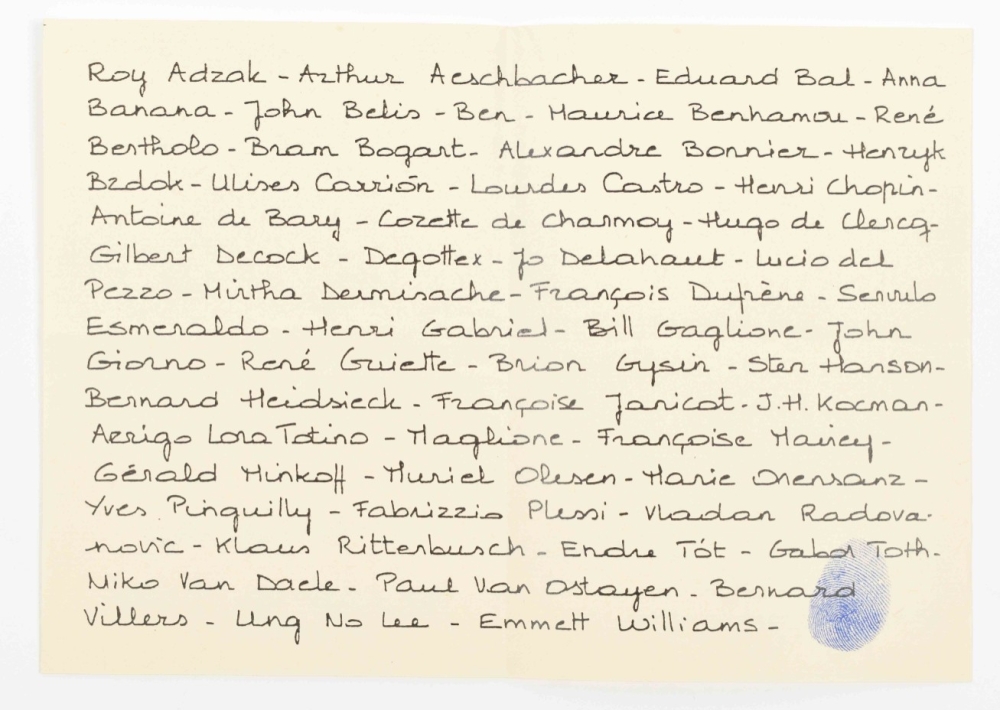 Roy Adzak - Arthur Aeschbacher - Eduard Bal - Anna
Banana - John Belis - Ben - Maurice Benhamou - René
Bertholo - Bram Bogart - Alexandre Bonnier - Henryk
Bzdok - Ulises Carrión - Lourdes Castro - Henri Chopin -
Antoine de Bary - Cozette de Charmoy - Hugo de Clercq -
Gilbert Decock - Degottex - Jo Delahaut - Lucio del
Pezzo - Mirtha Dermisache - François Dufrène - Servulo
Esmeraldo - Henri Gabriel - Bill Gaglione - John
Giorno - René Guiette - Brion Gysin - Sten Hanson -
Bernard Heidsieck - Françoise Janicot - J.H. Kocman -
Arrigo Lora Totino - Maglione - Françoise Mairey -
Gérald Minkoff - Muriel Olesen - Marie Orensanz -
Yves Pinguilly - Fabrizzio Plessi - Vladan Radova-
novic - Klaus Ritterbusch - Endre Tót - Gabor Toth -
Miko Van Daele - Paul Van Ostayen - Bernard
Villers - Ung No Lee - Emmett Williams -